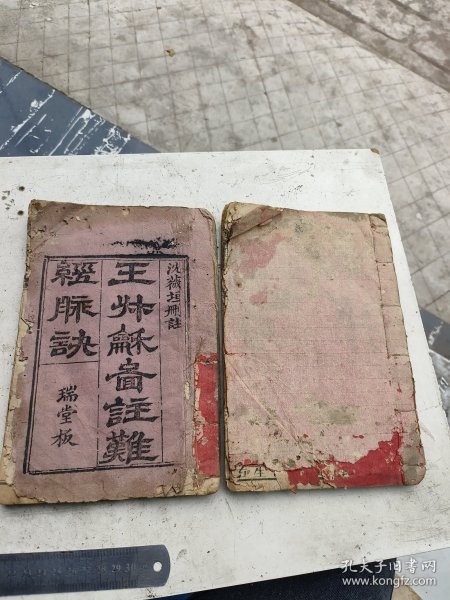 沈薇垣刪註
王叔龢啚註難
經脈訣
瑞堂板
孔夫子旧书网
www.kongfz.com